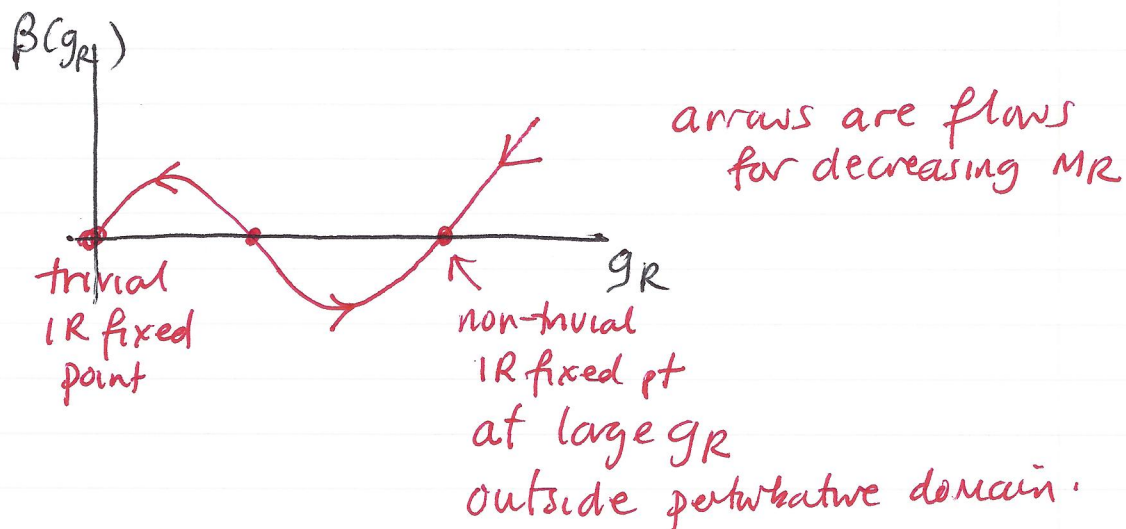 β(g_R)
arrows are flows
for decreasing M_R
g_R
trivial
IR fixed
point
non-trivial
IR fixed pt
at large g_R
outside perturbative domain.